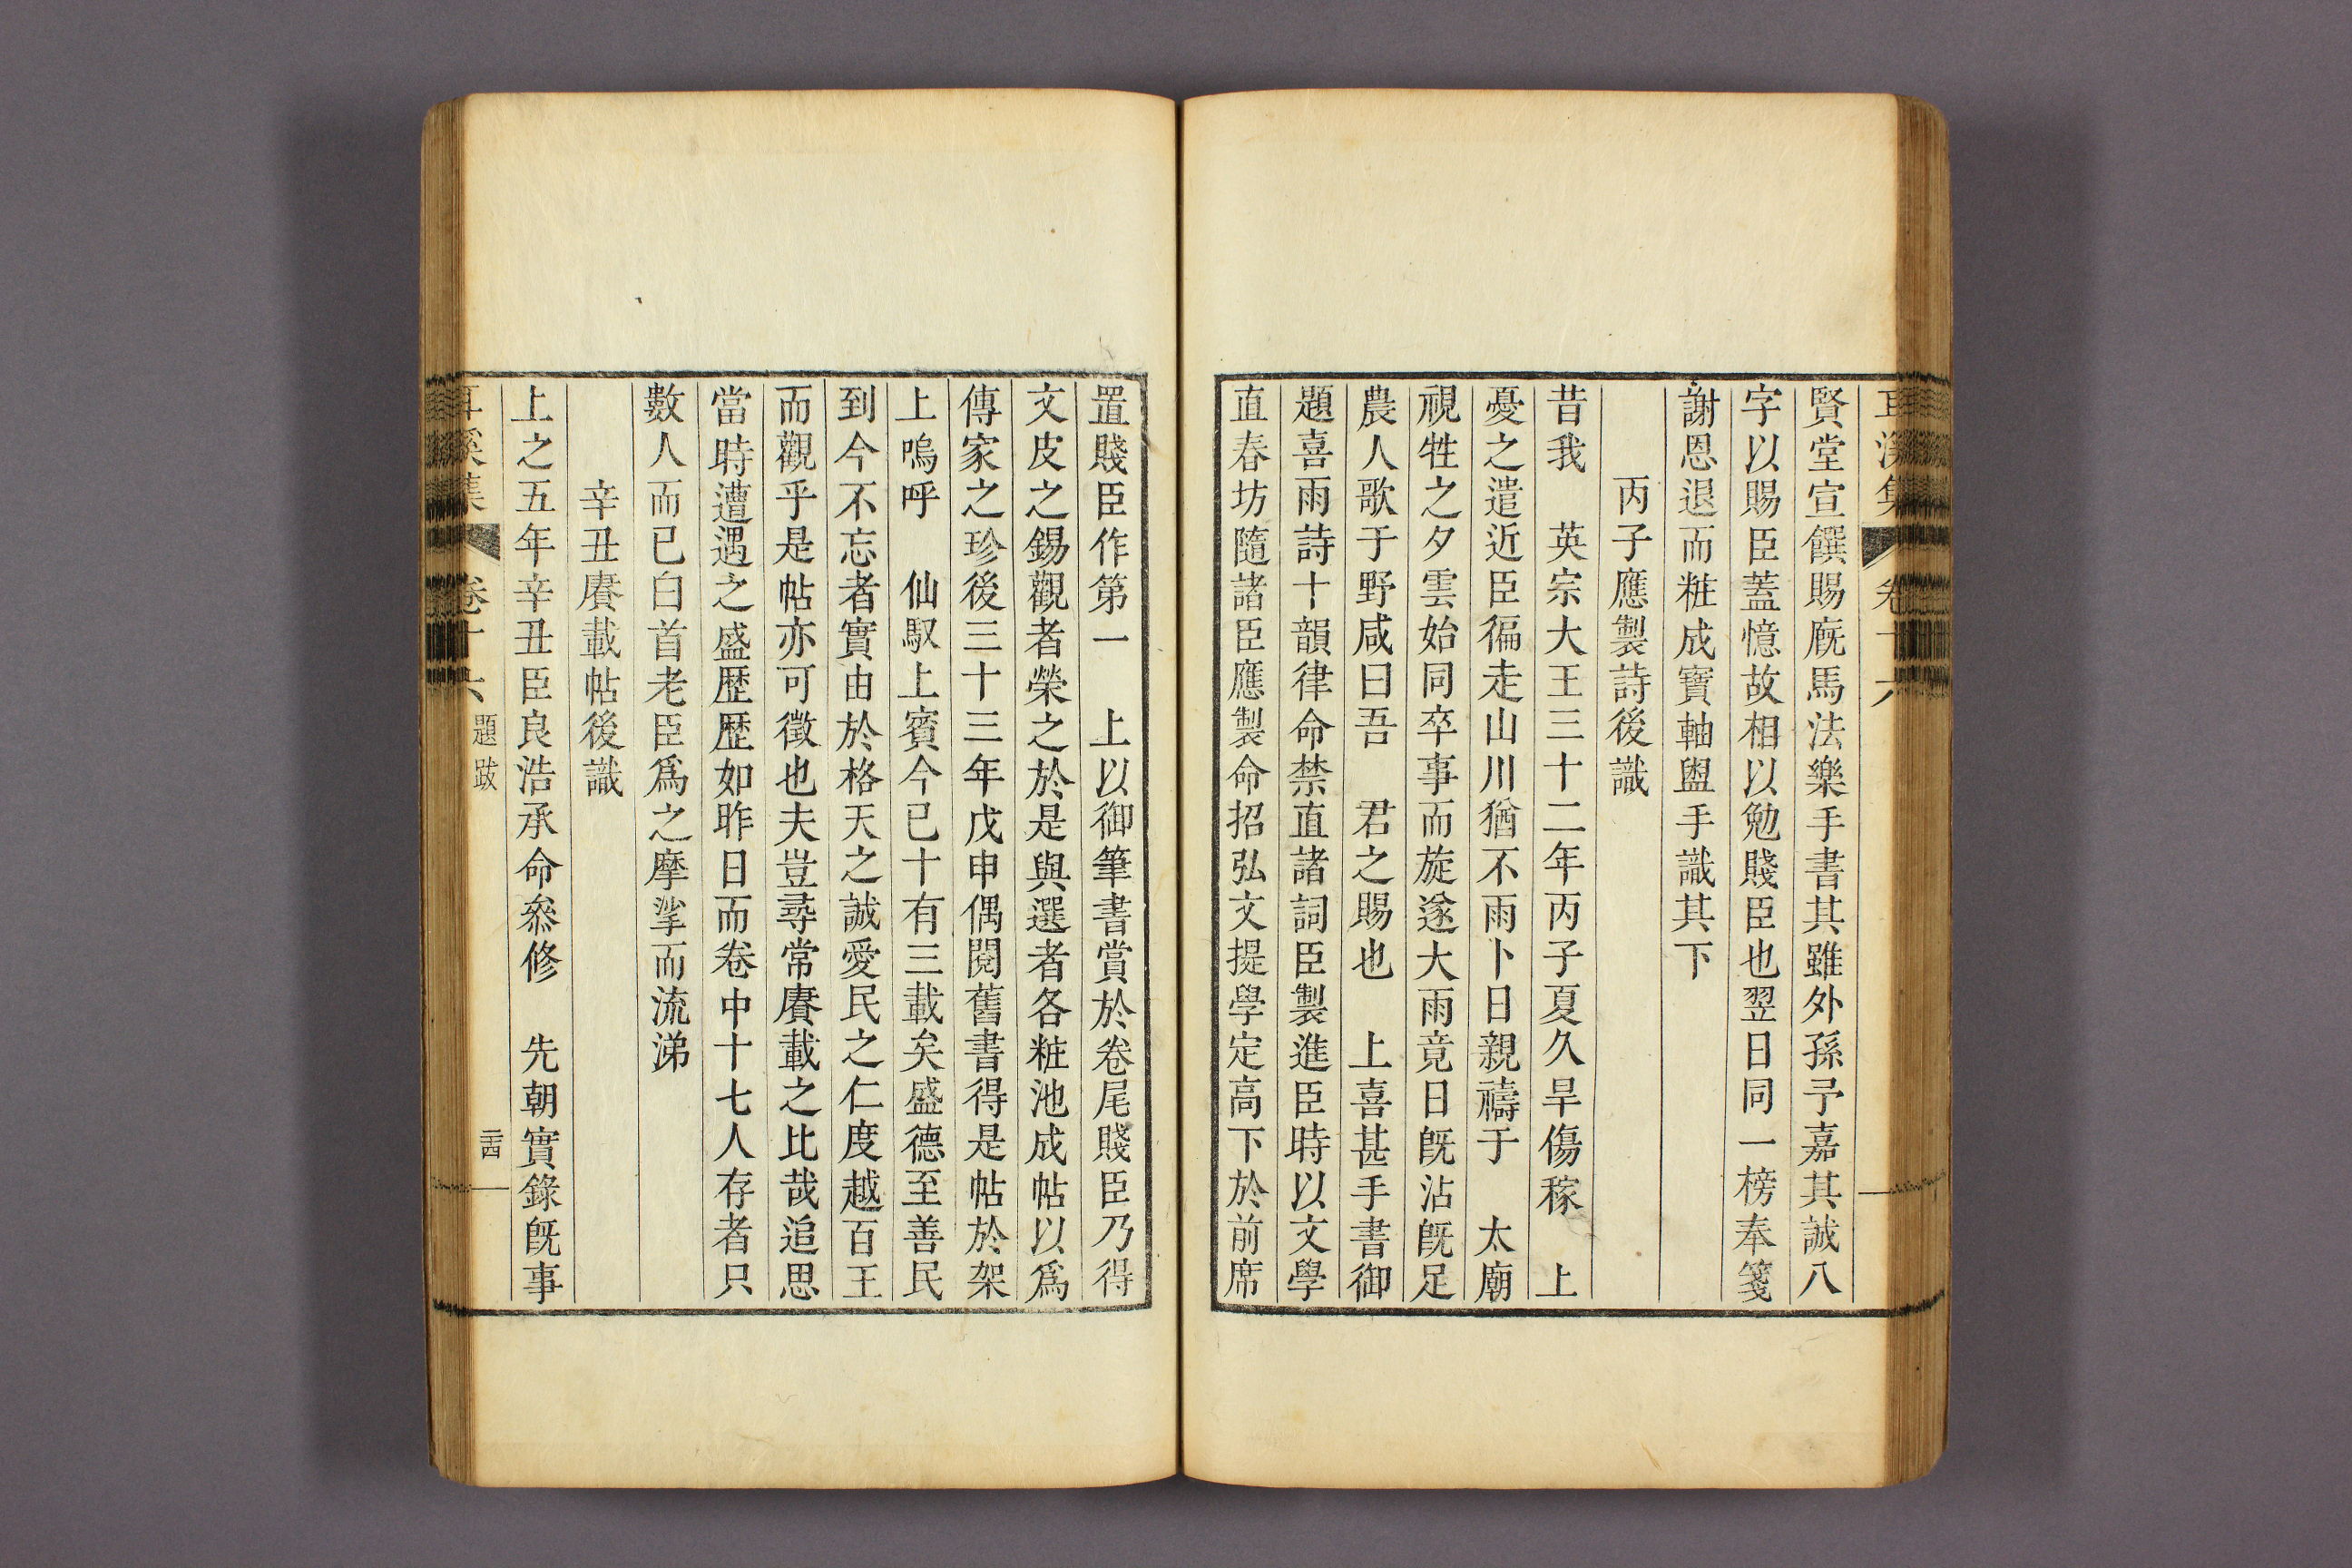 耳溪集 卷十六
賢堂宣饌賜廐馬法樂手書其雖外孫予嘉其誠八
字以賜臣蓋憶故相以勉賤臣也翌日同一榜奉箋
謝恩退而粧成寶軸盥手識其下
丙子應製詩後識
昔我 英宗大王三十二年丙子夏久旱傷稼 上
憂之遣近臣徧走山川猶不雨卜日親禱于 太廟
視牲之夕雲始同卒事而旋遂大雨竟日旣沾旣足
農人歌于野咸曰吾 君之賜也 上喜甚手書御
題喜雨詩十韻律命禁直諸詞臣製進臣時以文學
直春坊隨諸臣應製命招弘文提學定高下於前席
置賤臣作第一 上以御筆書賞於卷尾賤臣乃得
文皮之錫觀者榮之於是與選者各粧池成帖以爲
傳家之珍後三十三年戊申偶閱舊書得是帖於架
上嗚呼 仙馭上賓今已十有三載矣盛德至善民
到今不忘者實由於格天之誠愛民之仁度越百王
而觀乎是帖亦可徵也夫豈尋常賡載之比哉追思
當時遭遇之盛歷歷如昨日而卷中十七人存者只
數人而已白首老臣爲之摩挲而流涕
辛丑賡載帖後識
上之五年辛丑臣良浩承命叅修 先朝實錄旣事
耳溪集 卷十六 題跋 二十四